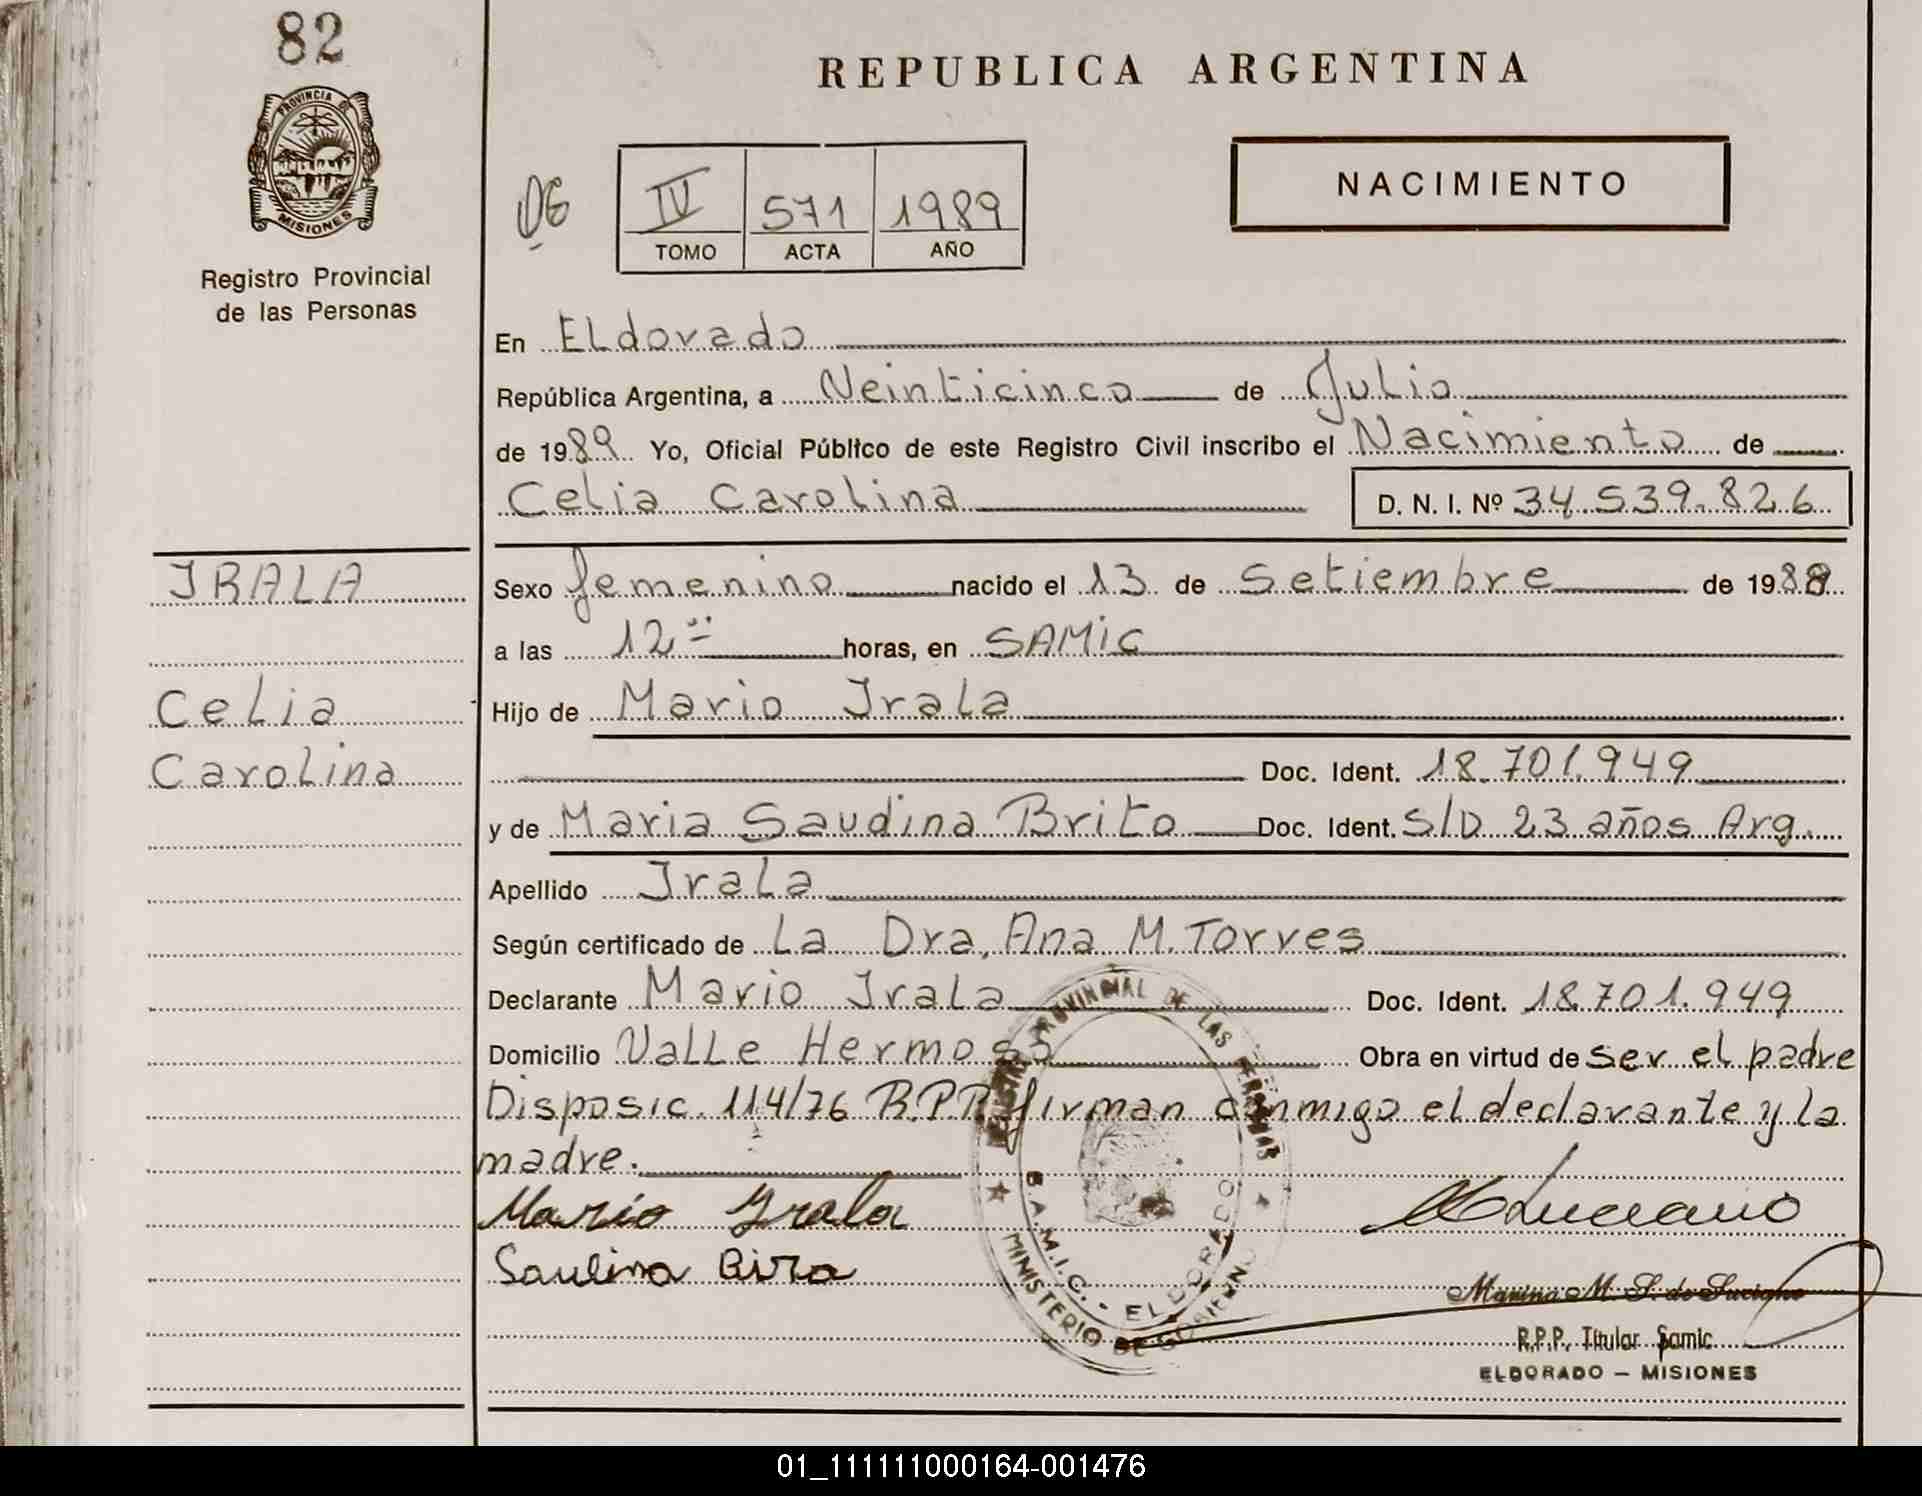 82
REPUBLICA ARGENTINA
PROVINCIA DE
MISIONES
Registro Provincial
de las Personas
IV 571 1989
TOMO ACTA AÑO
NACIMIENTO
En Eldorado
República Argentina, a Veinticinco de Julio
de 1989 Yo, Oficial Público de este Registro Civil inscribo el Nacimiento de
Celia Carolina D. N. I. Nº 34.539.826
IRALA
Sexo femenino nacido el 13 de Setiembre de 1988
a las 12 horas, en SAMIC
Celia
Hijo de Mario Irala
Carolina
Doc. Ident. 18.701.949
y de Maria Saudina Brito Doc. Ident. S/D 23 años Arg.
Apellido Irala
Según certificado de La Dra, Ana M. Torres
Declarante Mario Irala Doc. Ident. 18.701.949
Domicilio Valle Hermoso Obra en virtud de ser el padre
Disposic. 114/76 R.P.P. firman conmigo el declarante y la
madre.
Mario Irala
Saulina
PROVINCIAL DE LAS PERSONAS
S.A.M.I.C. - ELDORADO
MINISTERIO DE GOBIERNO
Marina M. S. de Luciano
R.P.P. Titular Samic
ELDORADO — MISIONES
01_111111000164-001476